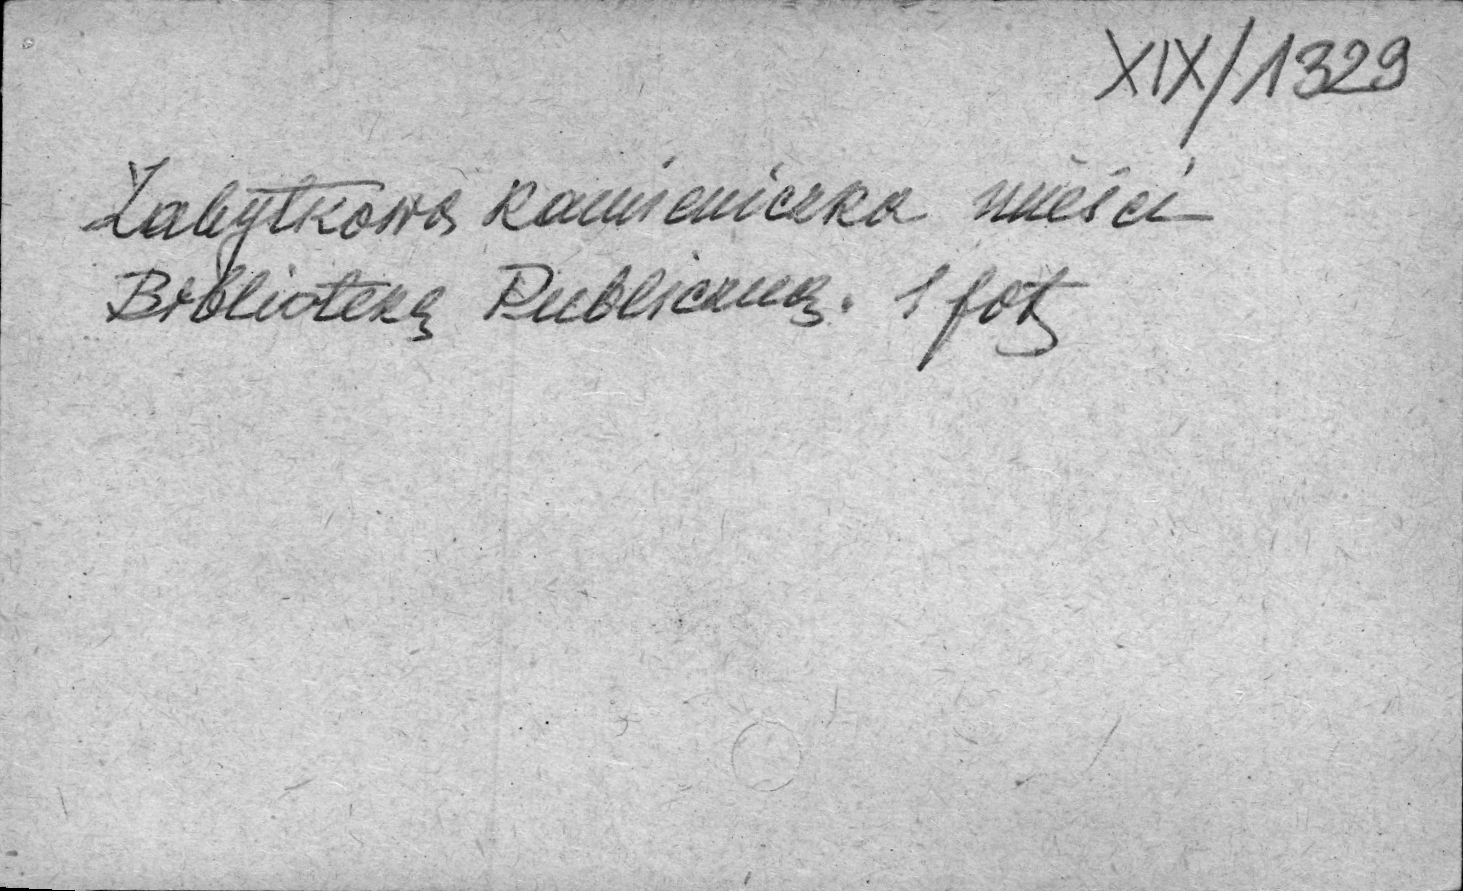 XIX/1329
Zabytkowa kamieniczka mieści
Bibliotekę Publiczną. 1 fot.